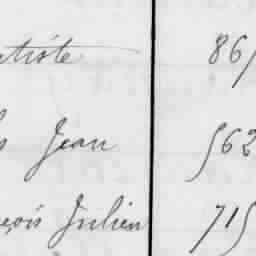 atiste 86
s Jean 562
nçois Julien 715